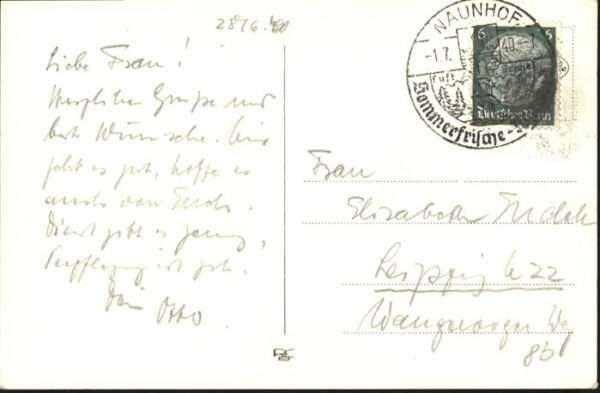 28 6. 40
Liebe Frau!
Herzliche Grüße und
beste Wünsche. Mir
geht es gut, hoffe es
auch von Euch.
Dienst gibt es genug,
Verpflegung ist gut.
Dein Otto
NAUNHOF
-1.7. 40
Sommerfrische
6 6
Deutsches Reich
Frau
Elisabeth
Leipzig C 22
8b I